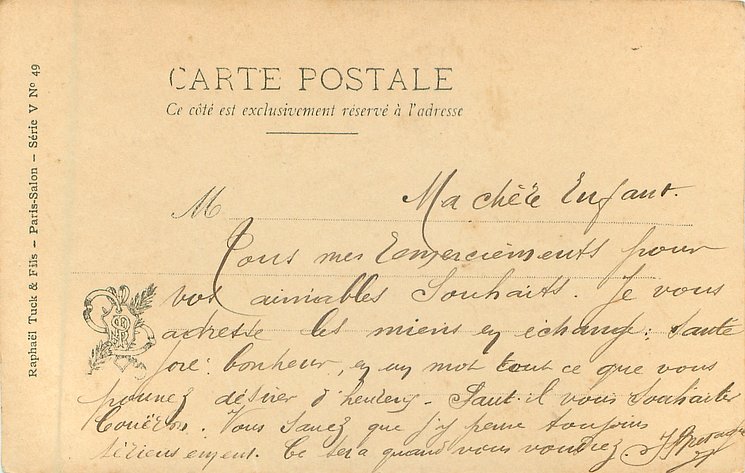 CARTE POSTALE
Ce côté est exclusivement réservé à l'adresse
Raphaël Tuck & Fils — Paris-Salon — Série V Nº 49
M
Ma chère Enfant.
Tous mes remerciements pour
vos aimables souhaits. Je vous
adresse les miens en echange: Santé
joie: bonheur, en un mot tout ce que vous
pouvez désirer d'heureux — Faut-il vous souhaiter
Couëron. Vous savez que j'y pense toujours
sérieusement. Ce sera quand vous voudrez